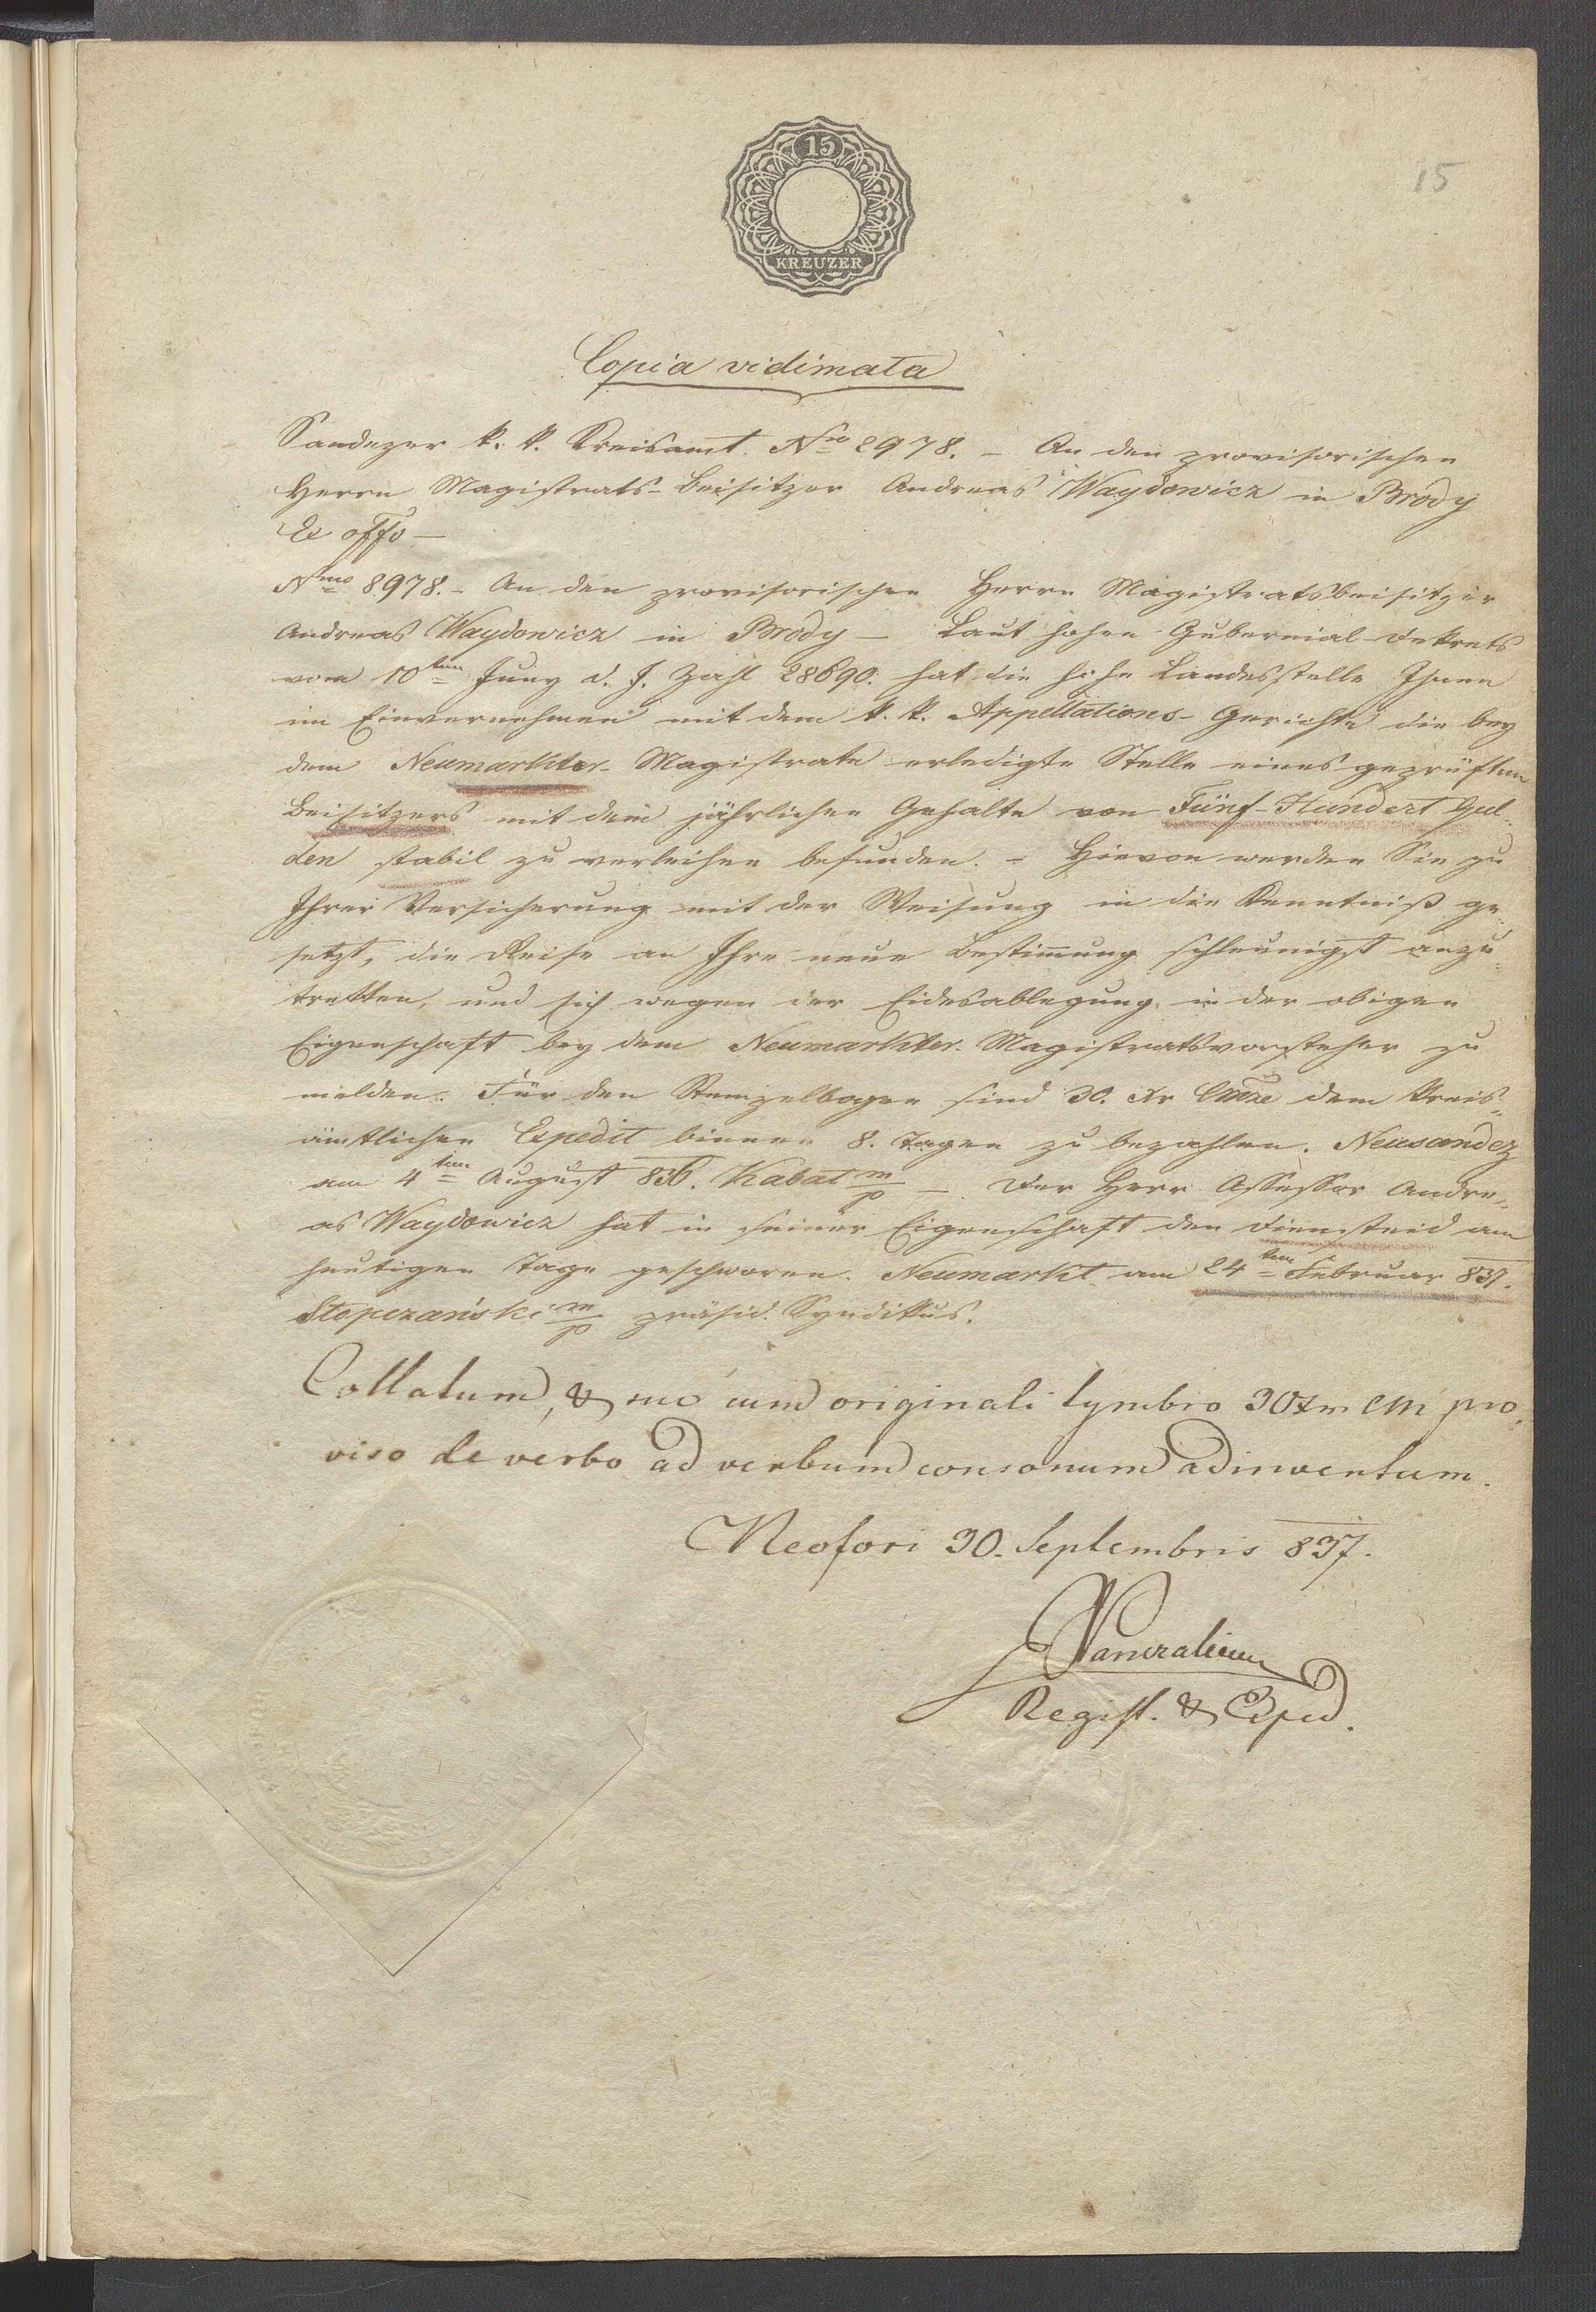 15
KREUZER
15
Copia vidimata
Sandezer k. k. Kreisamt. Nro 8978. – An den provisorischen
Herrn Magistrats-Beisitzer Andreas Waydowicz in Brody
Ex offo –
Nmo 8978. – An den provisorischen Herrn Magistratsbeisitzer
Andreas Waydowicz in Brody – Laut hohen Gubernial-Dekrets
vom 10ten Juny d. J. Zahl 28690. hat die hohe Landesstelle Ihnen
im Einvernehmen mit dem k. k. Appellations-Gerichte die bey
dem Neumarkter-Magistrate erledigte Stelle eines geprüften
Beisitzers mit dem jährlichen Gehalte von Fünf-Hundert Gul-
den stabil zu verleihen befunden. – Hievon werden Sie zu
Ihrer Versicherung mit der Weisung in die Kenntniß ge-
setzt, die Reise an Ihre neue Bestim̄ung schleunigst anzu-
tretten, und sich wegen der Eidesablegung in der obigen
Eigenschaft bey dem Neumarkter-Magistratsvorsteher zu
melden. Für den Stempelbogen sind 30. Xr dem Kreis-
ämtlichen Expedit binnen 8. Tagen zu bezahlen. Neusandez
am 4ten August 836. Kabat m/p – Der Herr Assessor Andre-
as Waydowicz hat in seiner Eigenschaft den Diensteid am
heutigen Tage geschworen. Neumarkt am 24ten Februar 837.
Stopczański m/p präsid. Syndikus.
Collatum, & cum originali tymbro 30 Xr CM pro-
viso de verbo ad verbum consonum adinventum.
Neofori 30. Septembris 837.
Regist. & Exped.